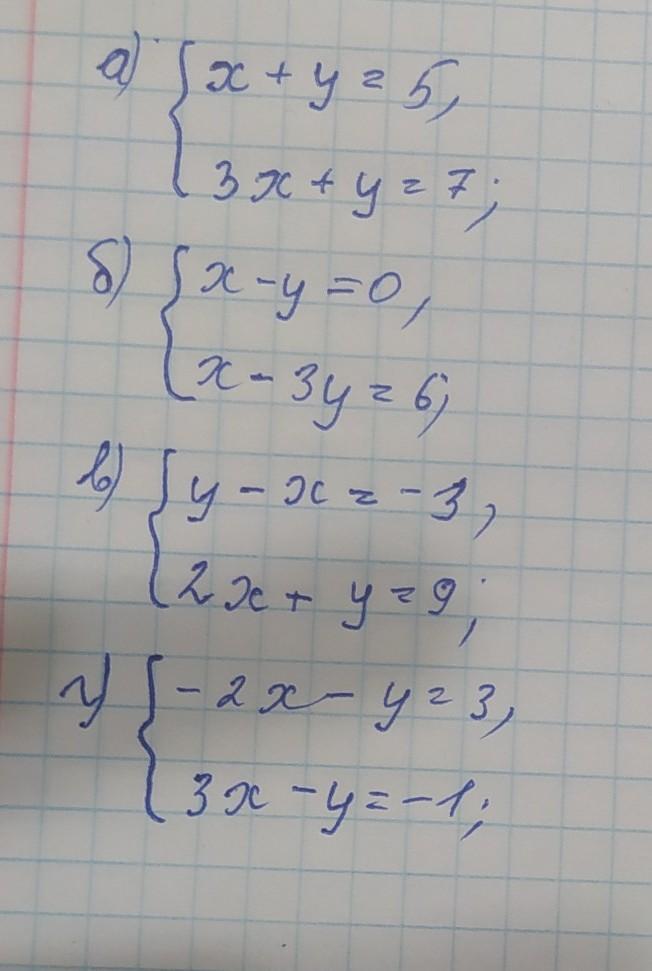 а) { x + y = 5,
3x + y = 7;
б) { x - y = 0,
x - 3y = 6;
в) { y - x = -3,
2x + y = 9;
г) { -2x - y = 3,
3x - y = -1;